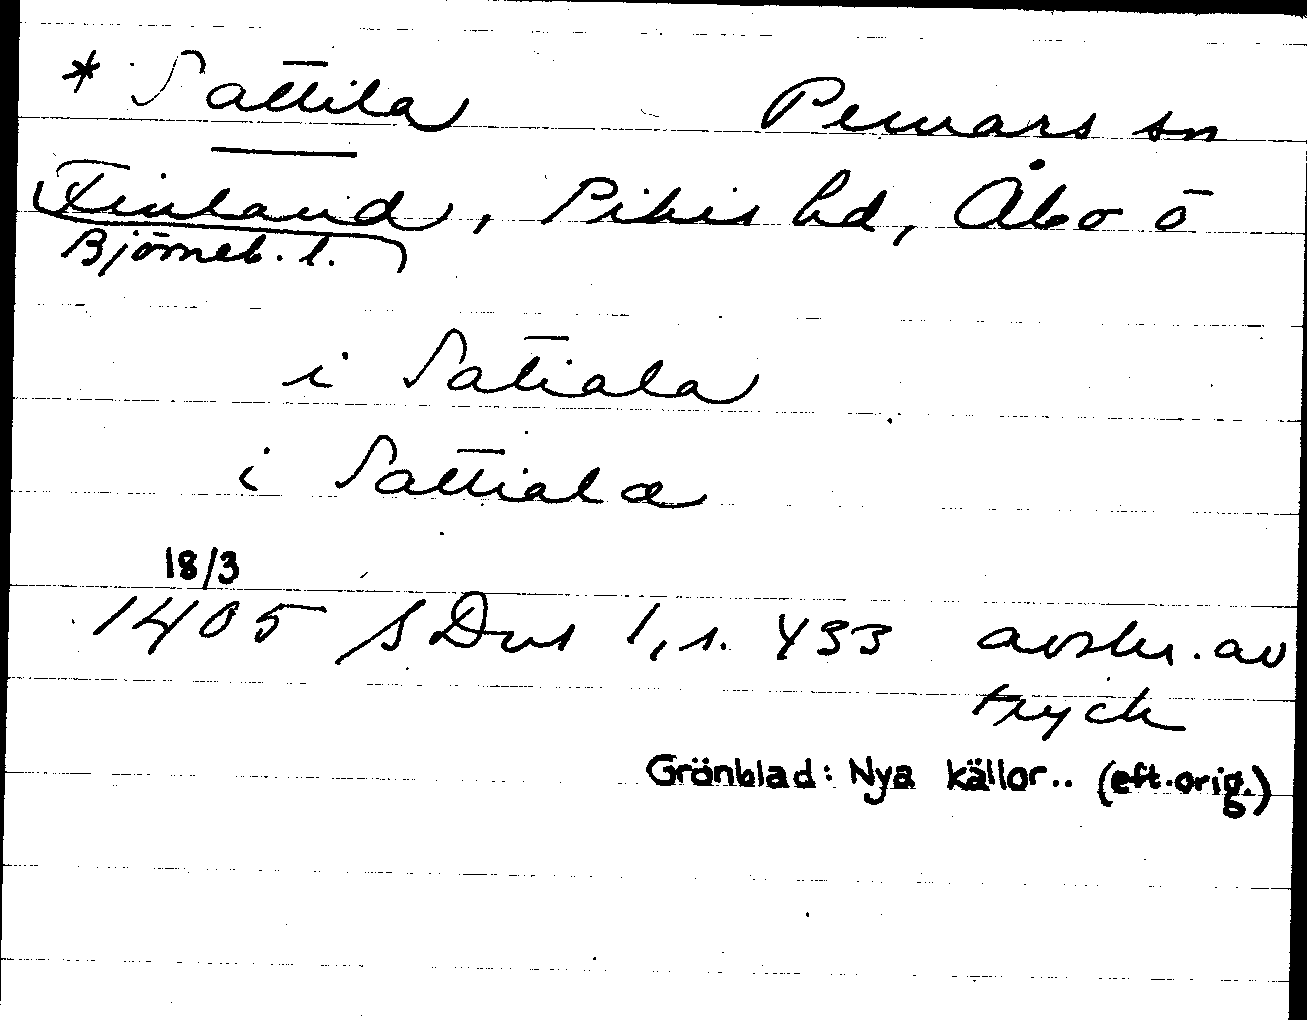 * Sattila Pemars sn
Finland, Pikis hd, Åbo o
Björneb. l.
i Satiala
i Sattiala
18/3
1405 SDns 1, s. 433 avskr. av
tryck
Grönblad: Nya källor.. (eft. orig.)